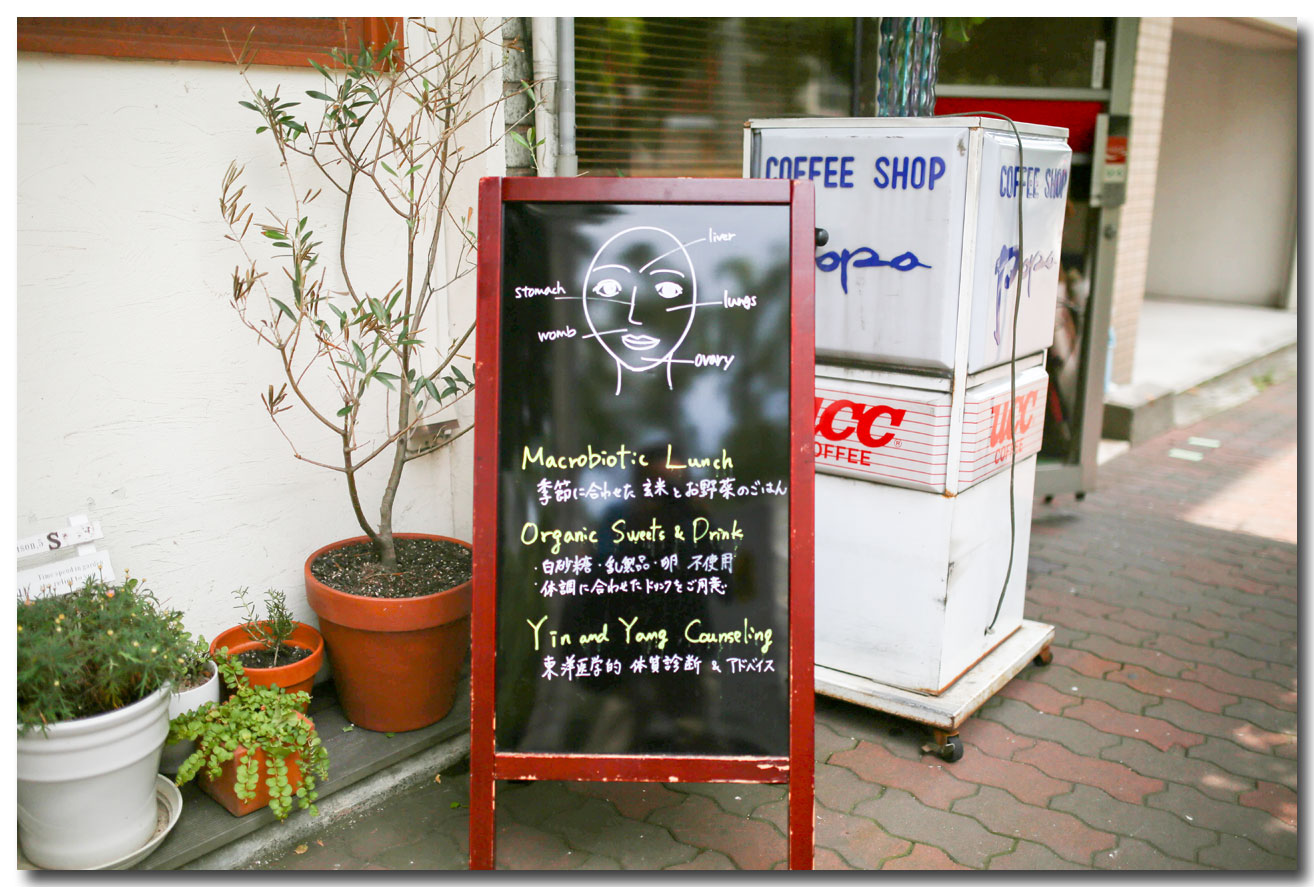 liver
stomach
lungs
womb
ovary
Macrobiotic Lunch
季節に合わせた 玄米とお野菜のごはん
Organic Sweets & Drink
・白砂糖・乳製品・卵 不使用
・体調に合わせたドリンクをご用意
Yin and Yang Counseling
東洋医学的 体質診断 & アドバイス
COFFEE SHOP
COFFEE SHOP
UCC®
COFFEE
UCC
COFFEE
Time spend in garden